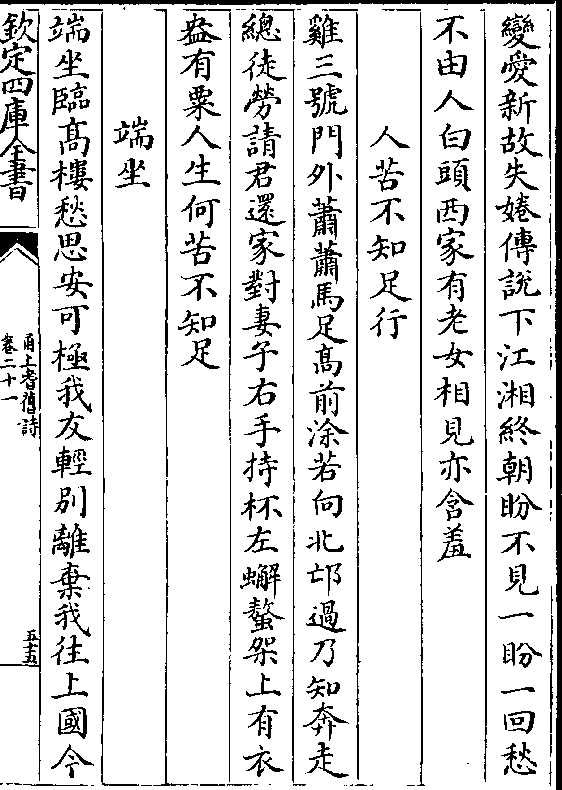 變愛新故失婘傳說下江湘終朝盼不見一盼一回愁
不由人白頭西家有老女相見亦含羞
人苦不知足行
雞三號門外蕭蕭馬足高前塗若向北邙過乃知奔走
總徒勞請君還家對妻子右手持杯左蠏螯架上有衣
盎有粟人生何苦不知足
端坐
端坐臨高樓愁思安可極我友輕別離棄我往上國今
欽定四庫全書
甬上耆舊詩
卷二十一
五十五